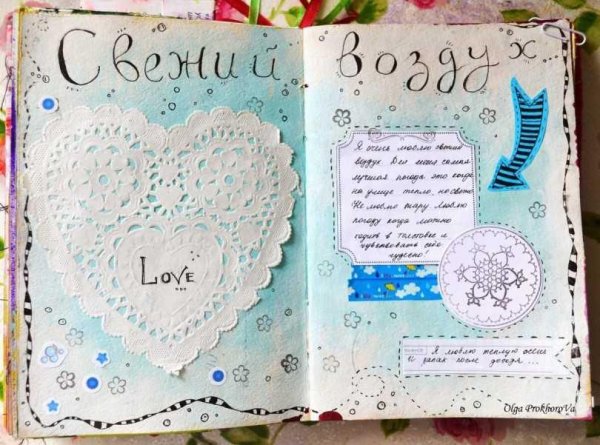 Свежий воздух
LOVE
Я очень люблю свежий
воздух. Для меня самая
лучшая погода это когда
на улице тепло, но свежо.
Не люблю жару. Люблю
погоду когда можно
ходить в толстовке и
чувствовать себя
чудесно.
Я люблю теплую осень
И запах после дождя...
Olga ProkhoroVa